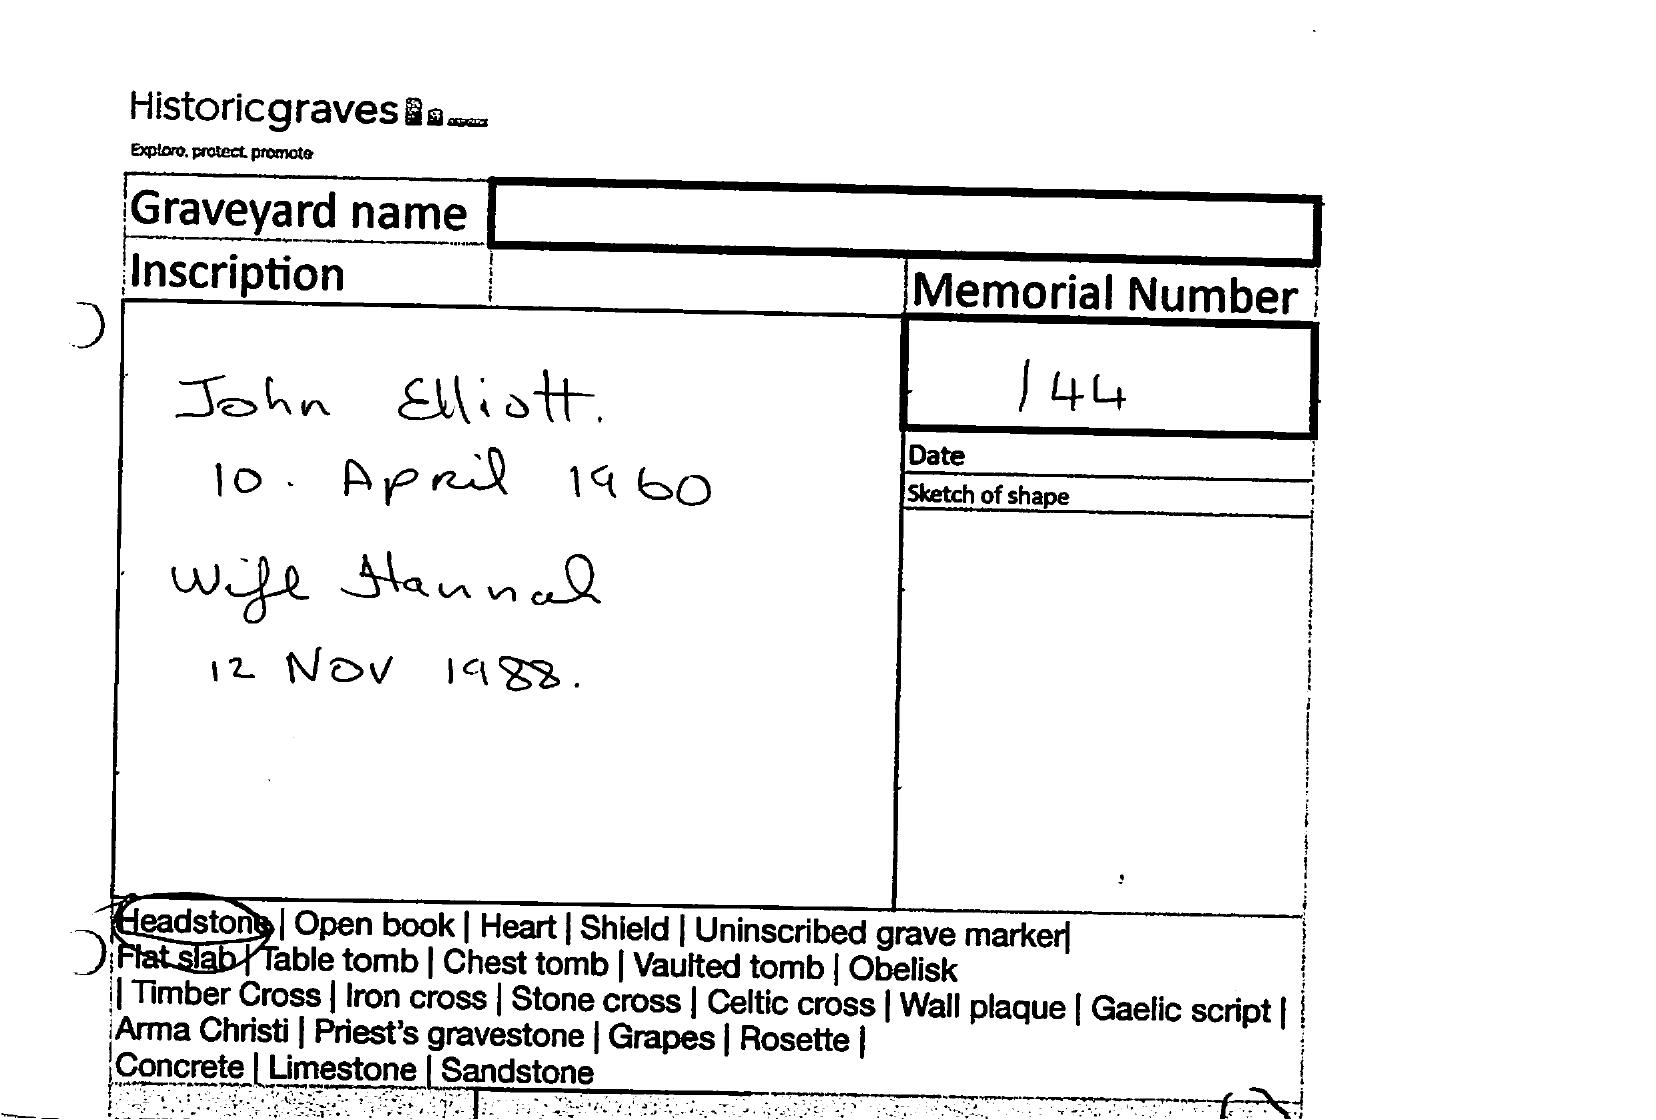 Historicgraves
Explore. protect. promote
Graveyard name
Inscription
Memorial Number
144
John Elliott.
10. April 1960
Wife Hannah
12 Nov 1988.
Date
Sketch of shape
Headstone | Open book | Heart | Shield | Uninscribed grave marker|
Flat slab | Table tomb | Chest tomb | Vaulted tomb | Obelisk
| Timber Cross | Iron cross | Stone cross | Celtic cross | Wall plaque | Gaelic script |
Arma Christi | Priest's gravestone | Grapes | Rosette |
Concrete | Limestone | Sandstone